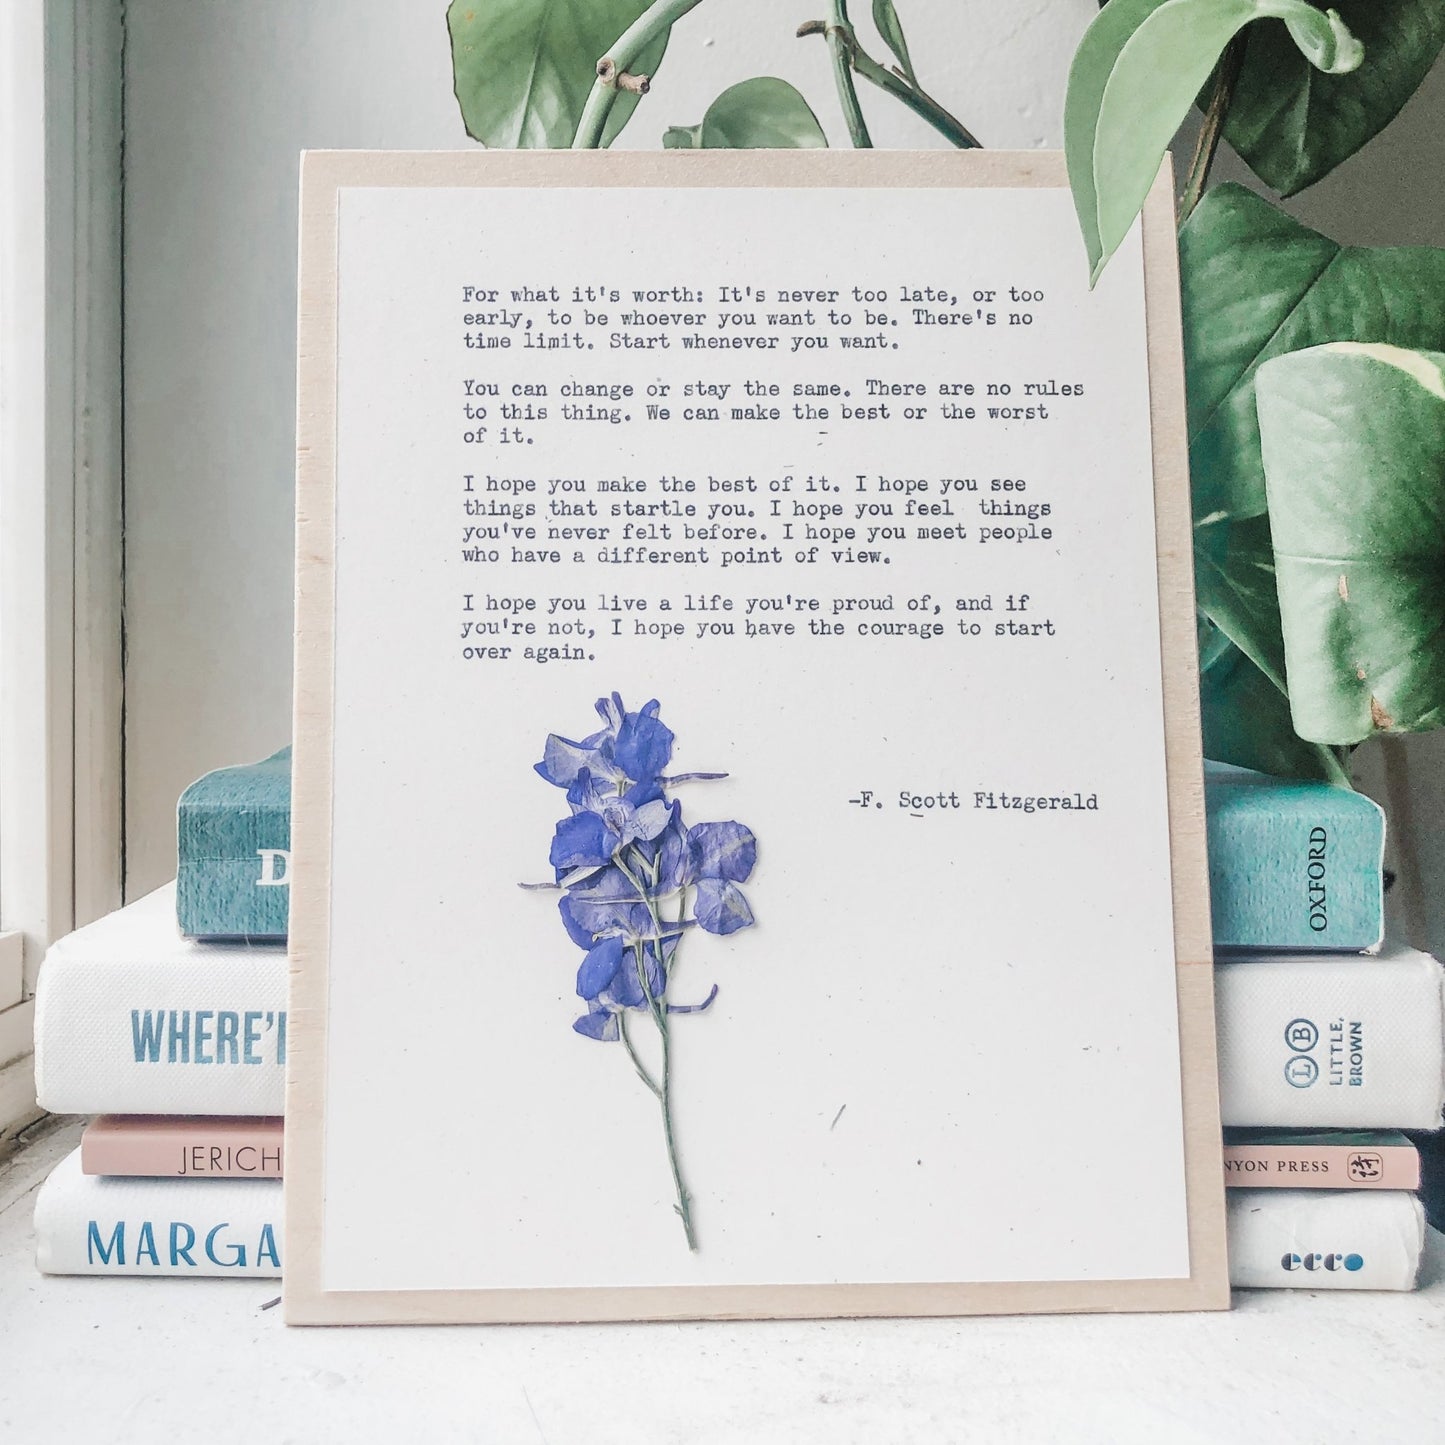 For what it's worth: It's never too late, or too
early, to be whoever you want to be. There's no
time limit. Start whenever you want.
You can change or stay the same. There are no rules
to this thing. We can make the best or the worst
of it.
I hope you make the best of it. I hope you see
things that startle you. I hope you feel  things
you've never felt before. I hope you meet people
who have a different point of view.
I hope you live a life you're proud of, and if
you're not, I hope you have the courage to start
over again.
-F. Scott Fitzgerald
D
WHERE'
JERICH
MARGA
OXFORD
LB
LITTLE,
BROWN
NYON PRESS
ecco